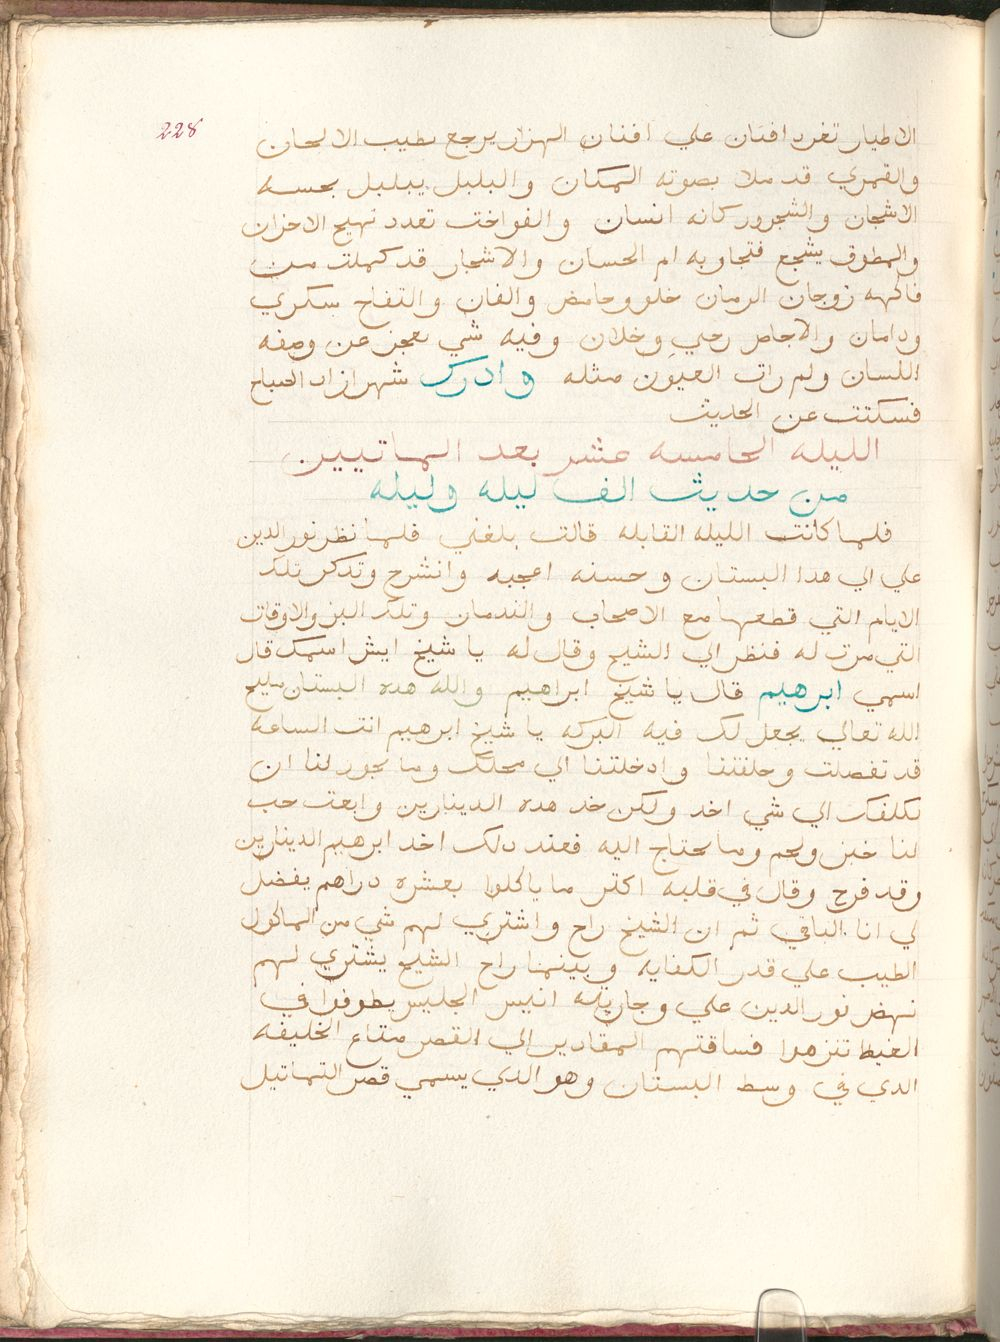 228
الاطيار تغرد افنان علي افنان الهزار يرجع بطيب الالحان
والقمري قد ملا بصوته المكان والبلبل يبلبل بحسه
الاشجان والشحرور كانه انسان والفواخت تعدد تهيج الاحزان
والمطوق يشجع فتجاوبه ام الحسان والاشجار قد كملت من
فاكهه زوجان الرمان حلو وحامض والفان والتفاح سكري
ودامان والاجاص رحبي وخلان وفيه شي يعجز عن وصفه
اللسان ولم رات العيون مثله وادرك شهرازاد الصباح
فسكتت عن الحديث
الليله الخامسه عشر بعد الماتيين
من حديث الف ليله وليله
فلما كانت الليله القابله قالت بلغني فلما نظر نور الدين
علي الي هدا البستان وحسنه اعجبه وانشرح وتدكر تلك
الايام التي قطعها مع الاصحاب والندمان وتلك البز والاوقات
التي مرت له فنظر الي الشيخ وقال له يا شيخ ايش اسمك قال
اسمي ابرهيم قال يا شيخ ابراهيم والله هده البستان مليح
الله تعالي يجعل لك فيه البركه يا شيخ ابرهيم انت الساعه
قد تفصلت وحلفتنا وادخلتنا الي محلك وما يجور لنا ان
نكلفك الي شي اخد ولكن خد هده الدينارين وابعت جب
لنا خبز ولحم وما يحتاج اليه فعند دلك اخد ابرهيم الدينارين
وقد فرح وقال في قلبه اكتر ما ياكلوا بعشره دراهم يفضل
لي انا الباقي ثم ان الشيخ راح واشتري لهم شي من الماكول
الطيب علي قدر الكفايه وبينما راح الشيخ يشتري لهم
نهض نور الدين علي وجاريته انيس الجليس يطوفوا في
الغيط تنزهوا فساقتهم المقادير الي القصر متاع الخليفه
الدي في وسط البستان وهو الدي يسمي قصر التماتيل